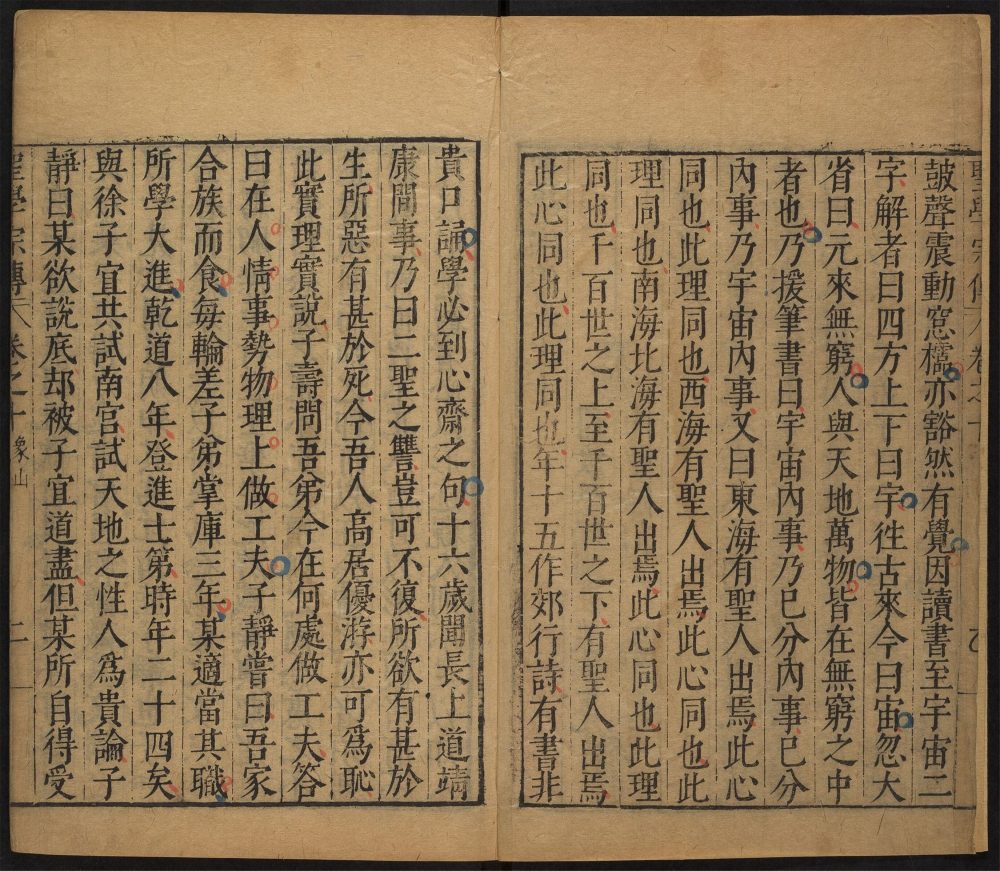 聖學宗傳 卷之十
鼓聲震動窓櫺亦豁然有覺因讀書至宇宙二
字解者曰四方上下曰宇徃古來今曰宙忽大
省曰元來無窮人與天地萬物皆在無窮之中
者也乃援筆書曰宇宙內事乃已分內事已分
內事乃宇宙內事又曰東海有聖人出焉此心
同也此理同也西海有聖人出焉此心同也此
理同也南海北海有聖人出焉此心同也此理
同也千百世之上至千百世之下有聖人出焉
此心同也此理同也年十五作郊行詩有書非
貴口誦學必到心齋之句十六歲聞長上道靖
康間事乃曰二聖之讐豈可不復所欲有甚於
生所惡有甚於死今吾人高居優游亦可爲恥
此實理實說子壽問吾弟今在何處做工夫答
曰在人情事勢物理上做工夫子靜嘗曰吾家
合族而食每輪差子弟掌庫三年某適當其職
所學大進乾道八年登進士第時年二十四矣
與徐子宜共試南宮試天地之性人爲貴論子
靜曰某欲說底却被子宜道盡但某所自得受
聖學宗傳 卷之十 象山 二